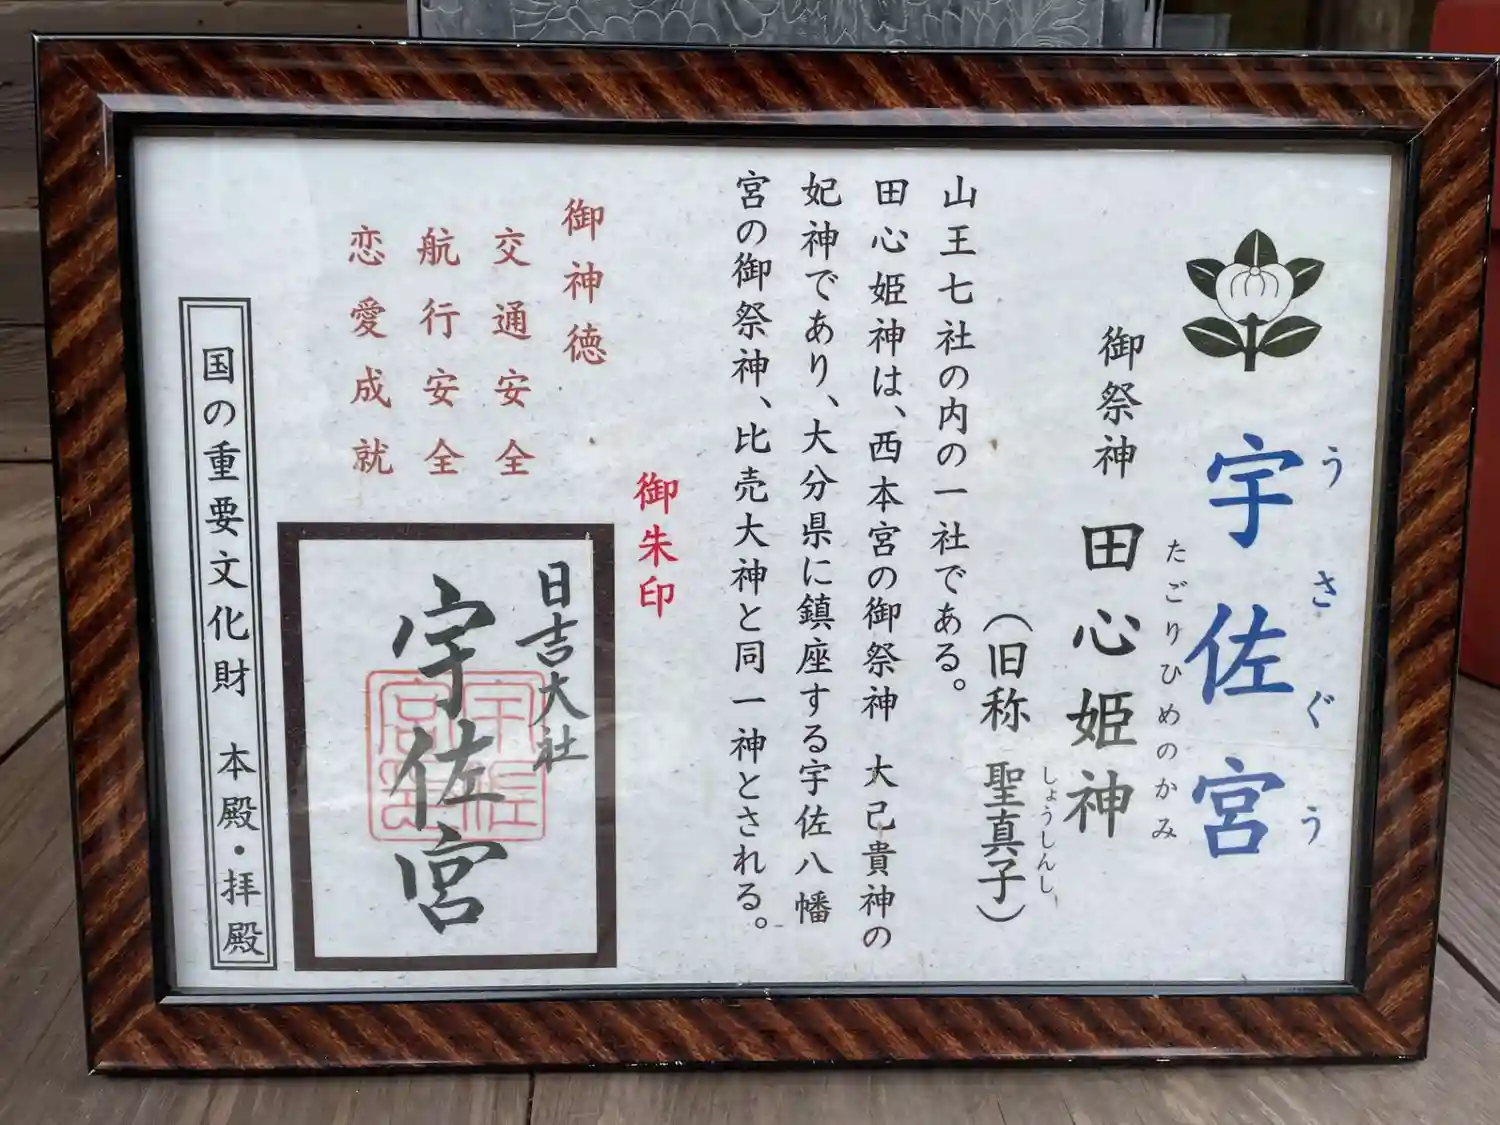 宇佐宮
うさぐう
御祭神 田心姫神
たごりひめのかみ
（旧称 聖真子）
しょうしんし
山王七社の内の一社である。
田心姫神は、西本宮の御祭神 大己貴神の
妃神であり、大分県に鎮座する宇佐八幡
宮の御祭神、比売大神と同一神とされる。
御朱印
日吉大社
宇佐宮
宇佐宮宝印
御神徳
交通安全
航行安全
恋愛成就
国の重要文化財 本殿・拝殿